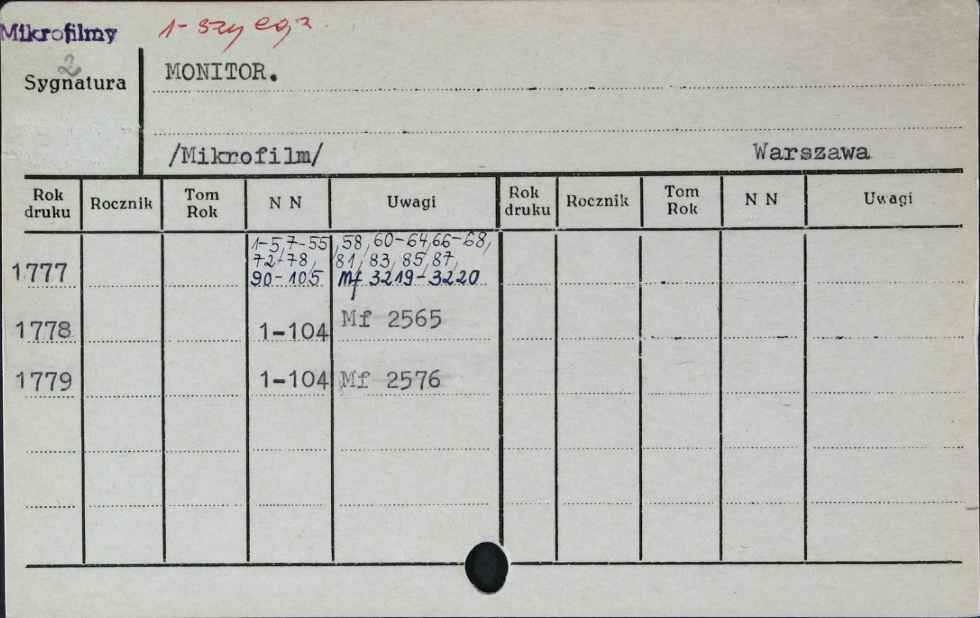 Mikrofilmy 1-szy egz.
2
Sygnatura MONITOR.
/Mikrofilm/ Warszawa
Rok druku Rocznik Tom Rok N N Uwagi Rok druku Rocznik Tom Rok N N Uwagi
1-5,7-55,58,60-64,66-68,
72-78, 81, 83, 85, 87,
1777 90-105 Mf 3219-3220
1778 1-104 Mf 2565
1779 1-104 Mf 2576